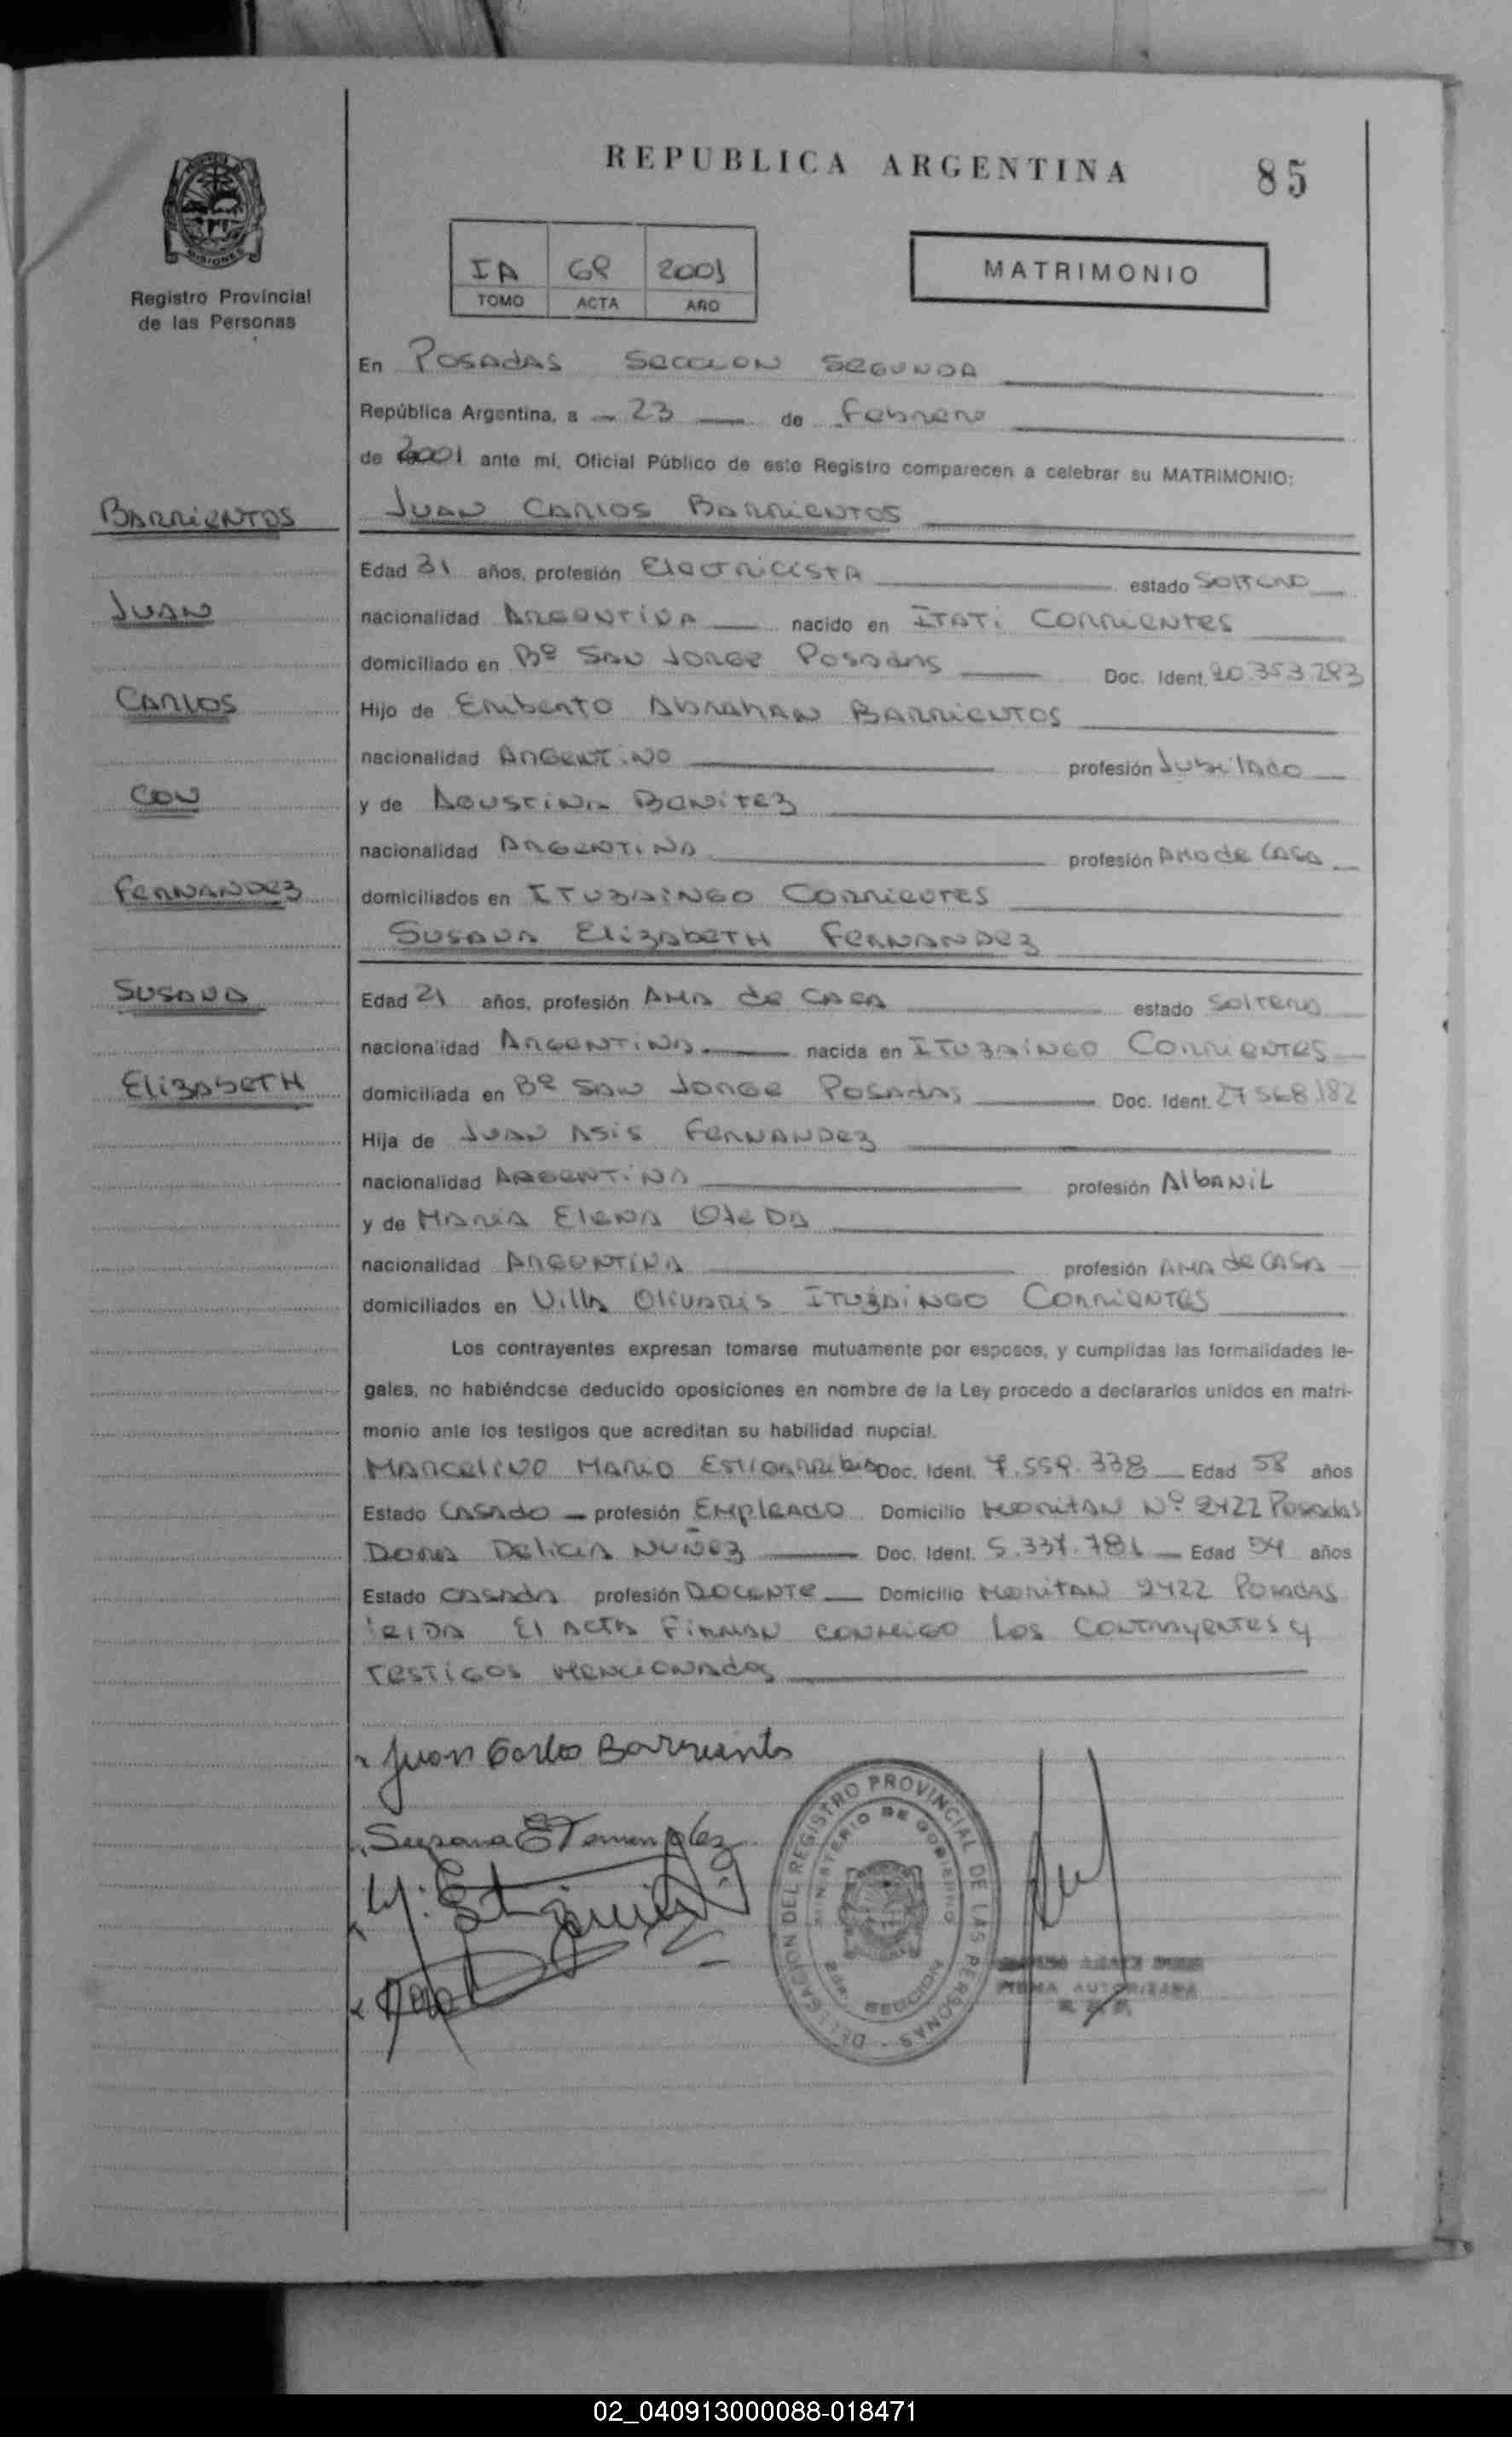 REPUBLICA ARGENTINA
85
MISIONES
Registro Provincial
de las Personas
IA 68 2001
TOMO ACTA AÑO
MATRIMONIO
En POSADAS SECCION SEGUNDA
República Argentina, a 23 de Febrero
de 2001 ante mí, Oficial Público de este Registro comparecen a celebrar su MATRIMONIO:
BARRIENTOS
JUAN CARLOS BARRIENTOS
Edad 31 años, profesión Electricista estado SOLTERO
JUAN
nacionalidad ARGENTINA nacido en ITATI CORRIENTES
domiciliado en Bº SAN JORGE POSADAS Doc. Ident. 20.353.283
CARLOS
Hijo de Eriberto Abrahan BARRIENTOS
nacionalidad ARGENTINO profesión Jubilado
CON
y de AGUSTINA BENITEZ
nacionalidad ARGENTINA profesión AMA de CASA
FERNANDEZ
domiciliados en ITUZAINGO CORRIENTES
SUSANA ELIZABETH FERNANDEZ
SUSANA
Edad 21 años, profesión AMA de CASA estado Soltera
nacionalidad ARGENTINA nacida en ITUZAINGO CORRIENTES
ELIZABETH
domiciliada en Bº SAN JORGE POSADAS Doc. Ident. 27 568 182
Hija de JUAN ASIS FERNANDEZ
nacionalidad ARGENTINA profesión AlbANIL
y de MARIA ELENA OJEDA
nacionalidad ARGENTINA profesión AMA de CASA
domiciliados en Villa Olivaris ITUZAINGO CORRIENTES
Los contrayentes expresan tomarse mutuamente por esposos, y cumplidas las formalidades le-
gales, no habiéndose deducido oposiciones en nombre de la Ley procedo a declararlos unidos en matri-
monio ante los testigos que acreditan su habilidad nupcial.
MARCELINO MARIO ESTIGARRIBIA Doc. Ident. 7.559.338 Edad 58 años
Estado CASADO profesión EMPLEADO Domicilio Nº 2422 Posadas
DORA DELICIA NUÑEZ Doc. Ident. 5.337.781 Edad 54 años
Estado CASADA profesión DOCENTE Domicilio 2422 POSADAS
LEIDA El ACTA FIRMAN CONMIGO LOS CONTRAYENTES y
TESTIGOS MENCIONADOS
Juan Carlos Barrientos
Susana E Fernandez
DELEGACION DEL REGISTRO PROVINCIAL DE LAS PERSONAS
MINISTERIO DE GOBIERNO
2da. SECCION
FIRMA AUTORIZADA
02_040913000088-018471